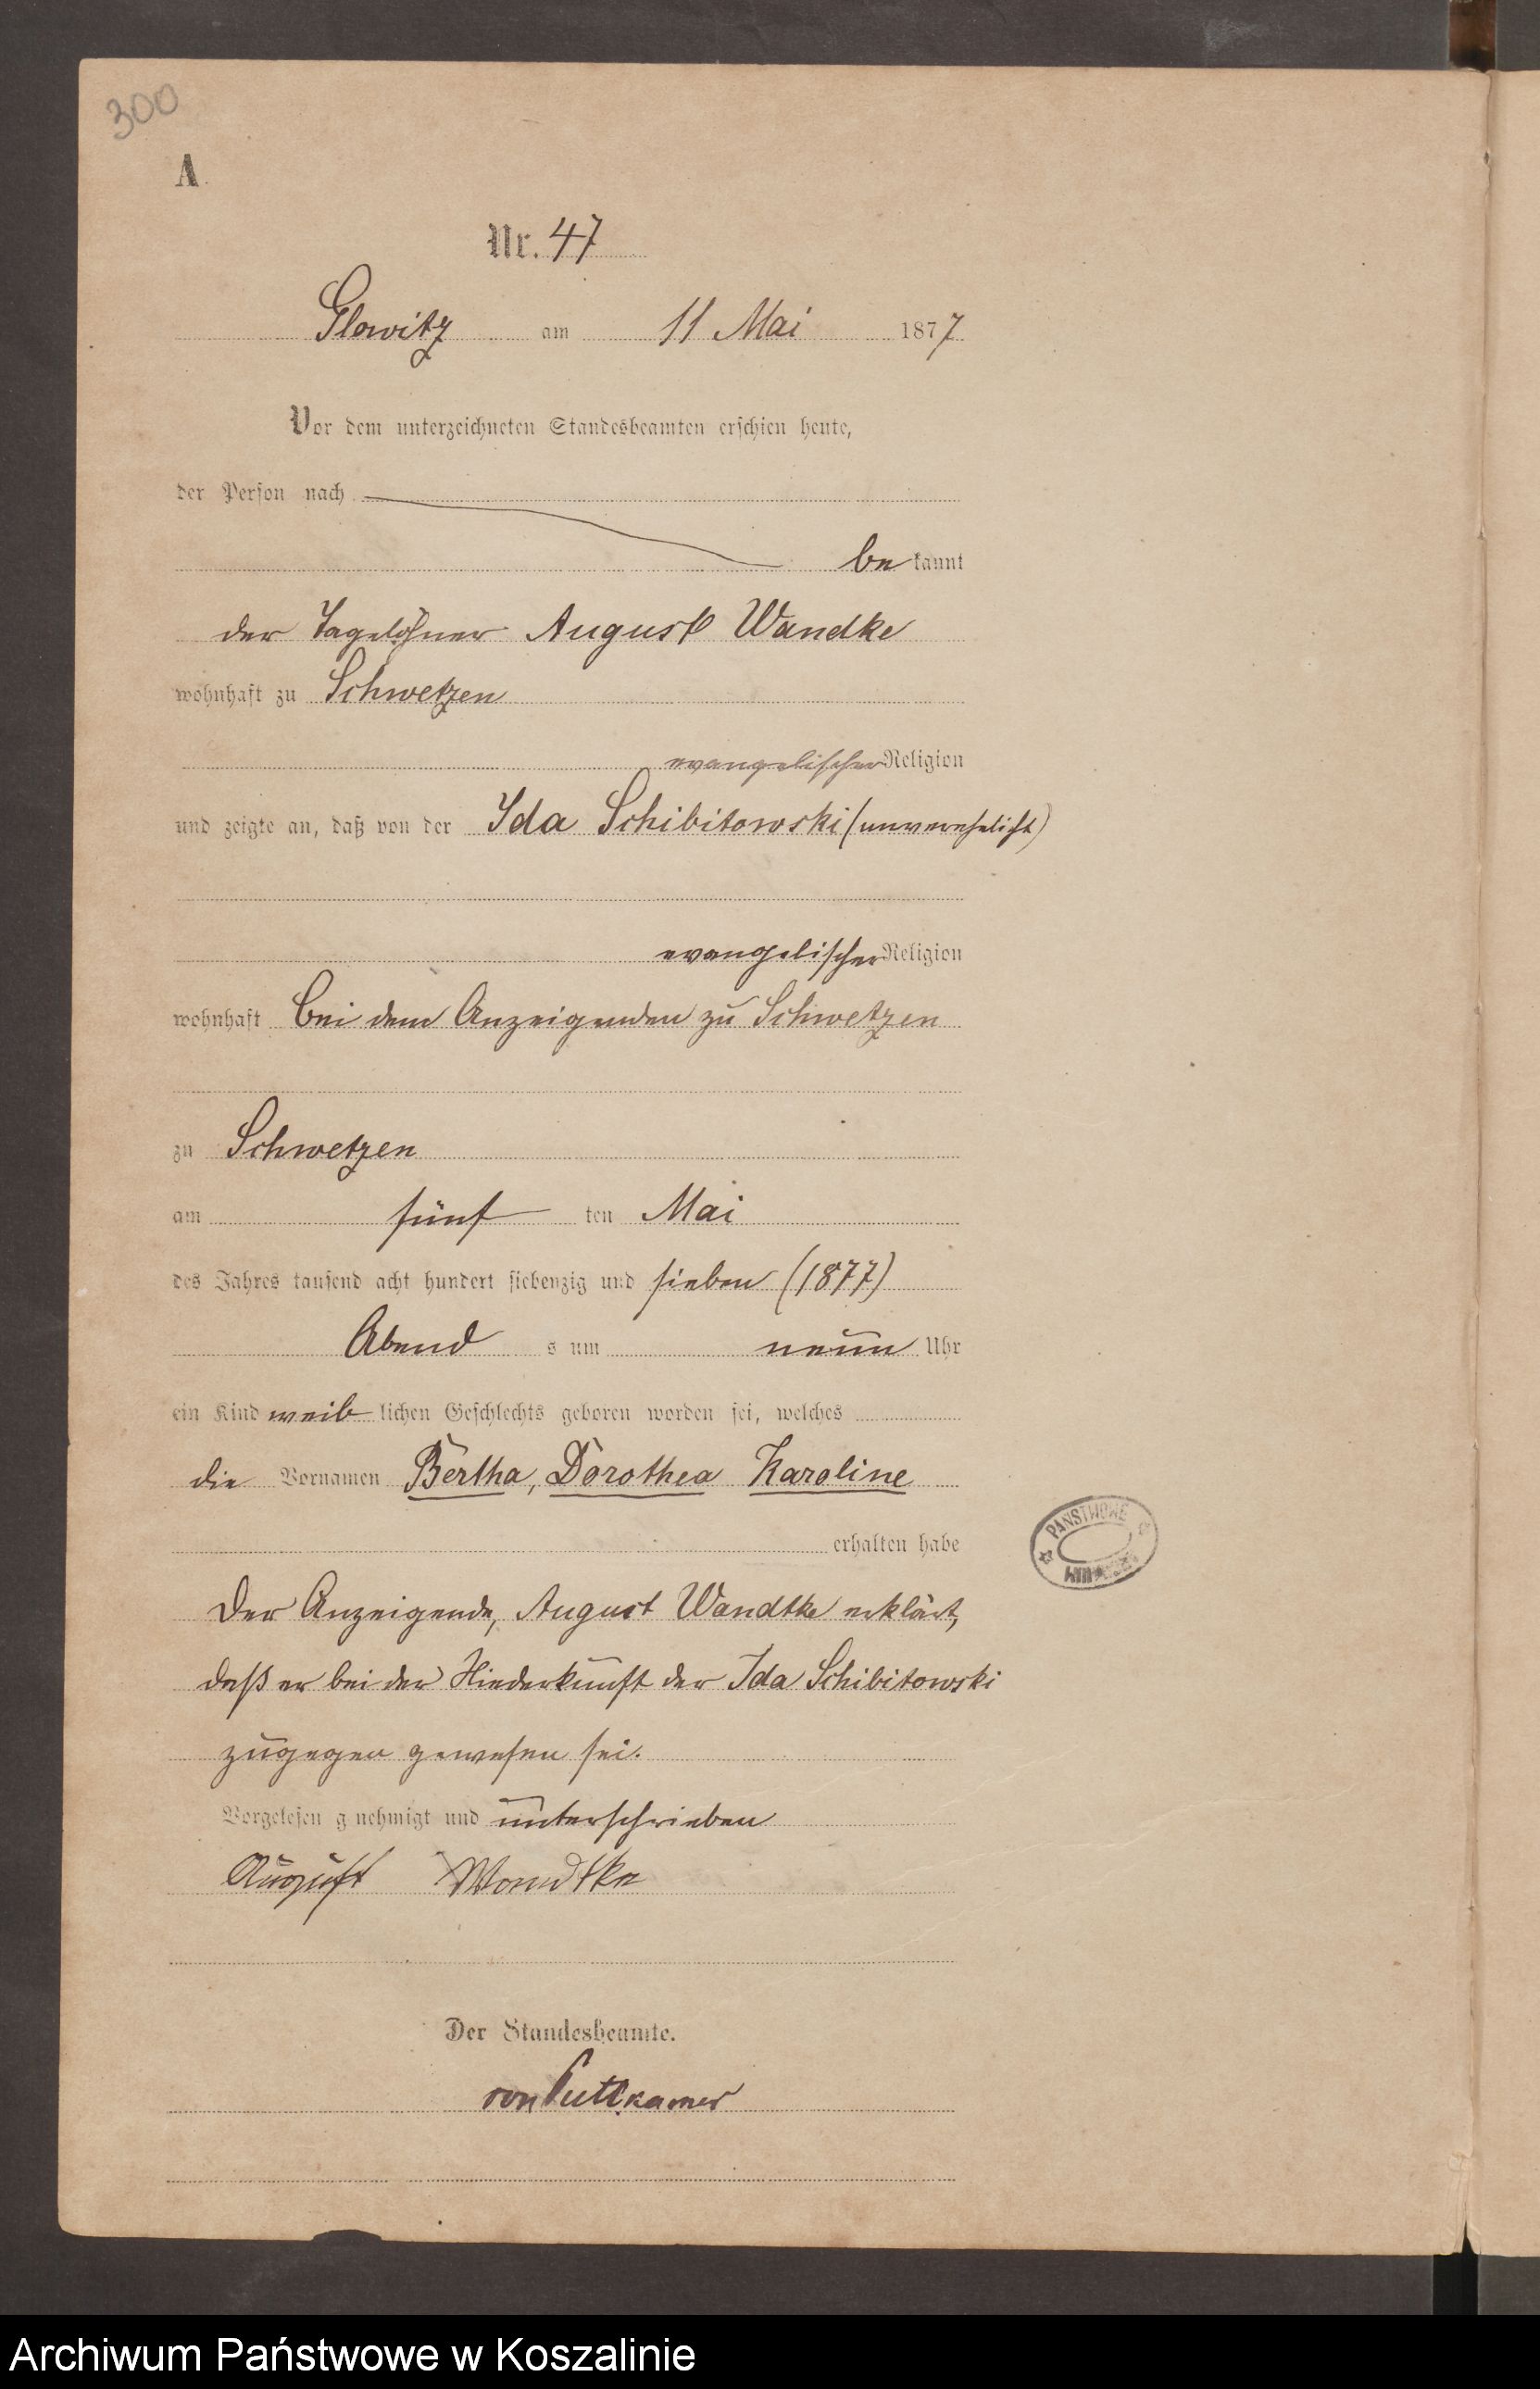 300
A
Nr. 47
Glowitz am 11 Mai 1877
Vor dem unterzeichneten Standesbeamten erschien heute,
der Person nach
be kannt
der Tagelöhner August Wandke
wohnhaft zu Schwetzen
evangelischer Religion
und zeigte an, daß von der Ida Schibitowski (unverehelicht)
evangelischer Religion
wohnhaft bei dem Anzeigenden zu Schwetzen
zu Schwetzen
am fünf ten Mai
des Jahres tausend acht hundert siebenzig und sieben (1877)
Abend s um neun Uhr
ein Kind weib lichen Geschlechts geboren worden sei, welches
die Vornamen Bertha, Dorothea Karoline
erhalten habe
Der Anzeigende, August Wandtke erklärt,
daß er bei der Niederkunft der Ida Schibitowski
zugegen gewesen sei.
Vorgelesen g nehmigt und unterschrieben
August Wandtke
Der Standesbeamte.
von Puttkamer
PAŃSTWOWE
Archiwum Państwowe w Koszalinie